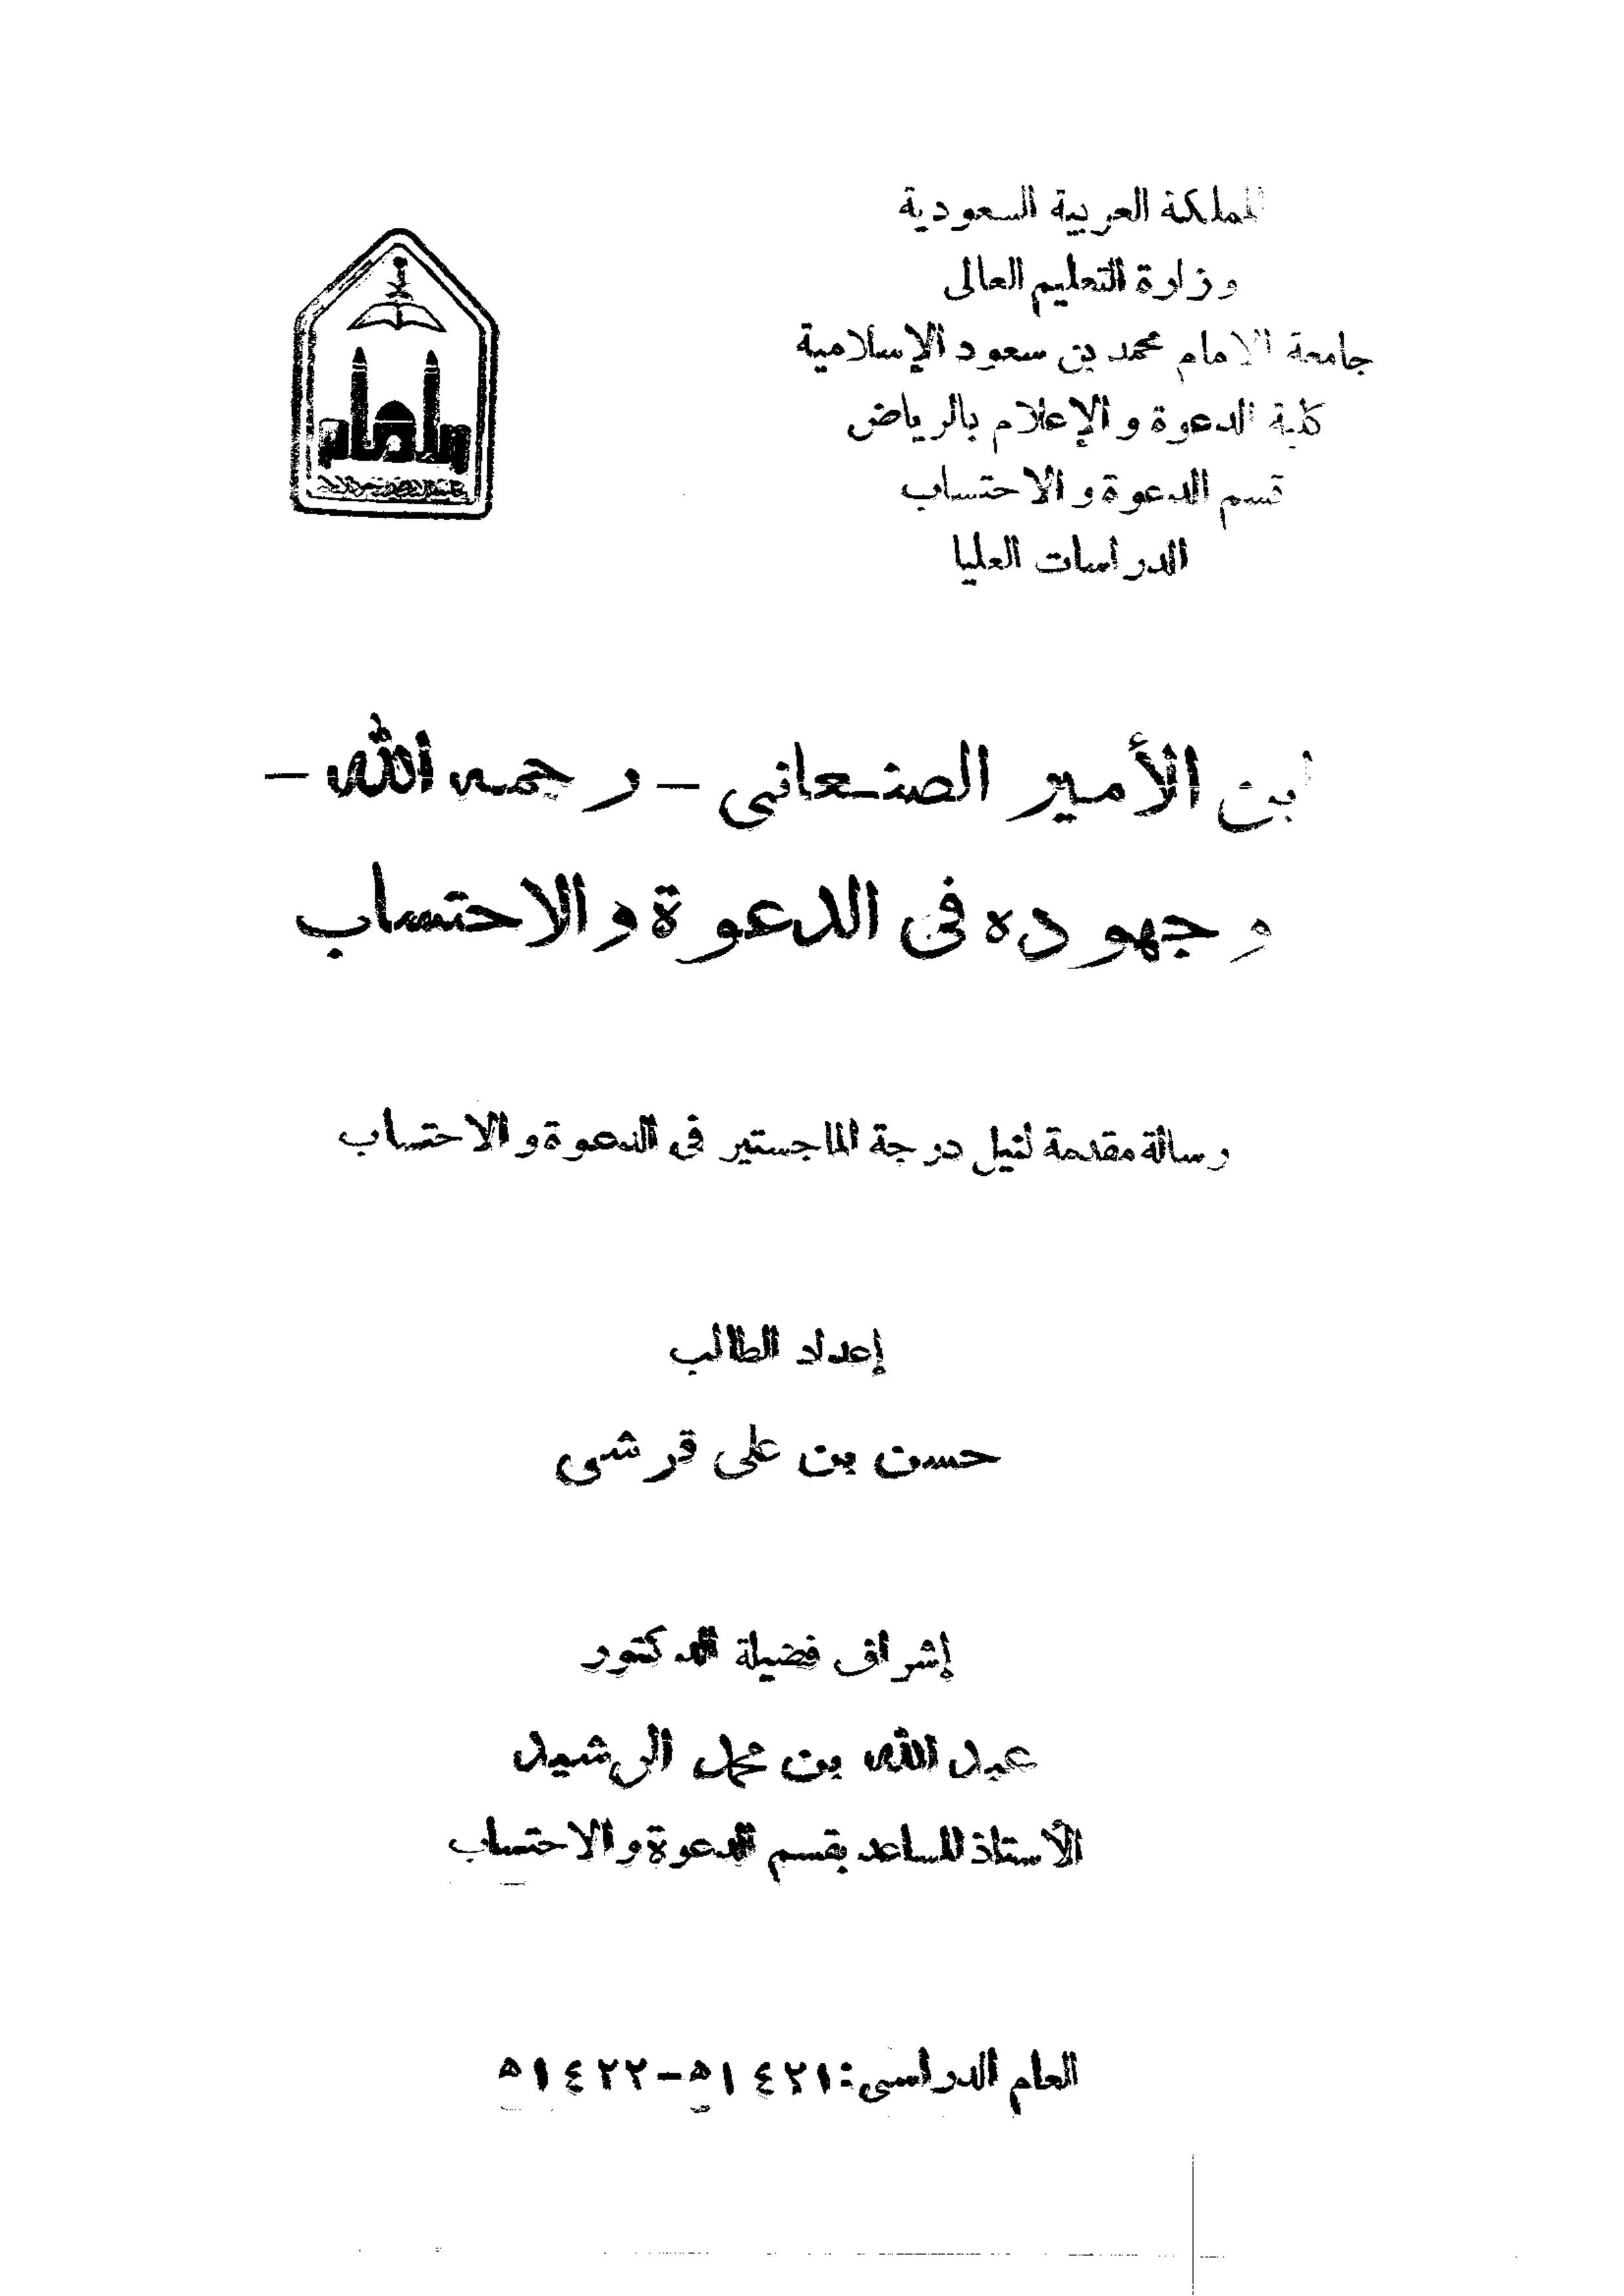 المملكة العربية السعودية
وزارة التعليم العالى
جامعة الامام محمد بن سعود الإسلامية
كلية الدعوة والإعلام بالرياض
قسم الدعوة والاحتساب
الدراسات العليا
ابن الأمير الصنعانى - رحمه الله -
وجهوده فى الدعوة والاحتساب
رسالة مقدمة لنيل درجة الماجستير فى الدعوة والاحتساب
إعداد الطالب
حسن بن على قرشى
إشراف فضيلة الدكتور
عبد الله بن محمد الرشيد
الأستاذ المساعد بقسم الدعوة والاحتساب
العام الدراسى: ١٤٢١ه-١٤٢٢ه